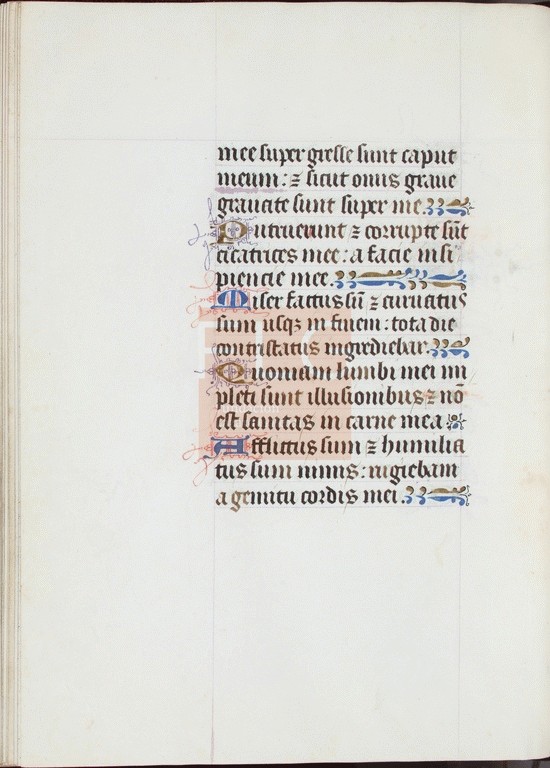 mee super gresse sunt caput
meum : ⁊ sicut onus graue
grauate sunt super me.
Putruerunt ⁊ corrupte sūt
cicatrices mee : a facie insi
piencie mee.
Miser factus sū ⁊ curuatus
sum usqꝫ in finem : tota die
contristatus ingrediebar.
Quoniam lumbi mei im
pleti sunt illusionibus ⁊ nō
est sanitas in carne mea
Afflictus sum ⁊ humilia
tus sum nimis : rugiebam
a gemitu cordis mei.